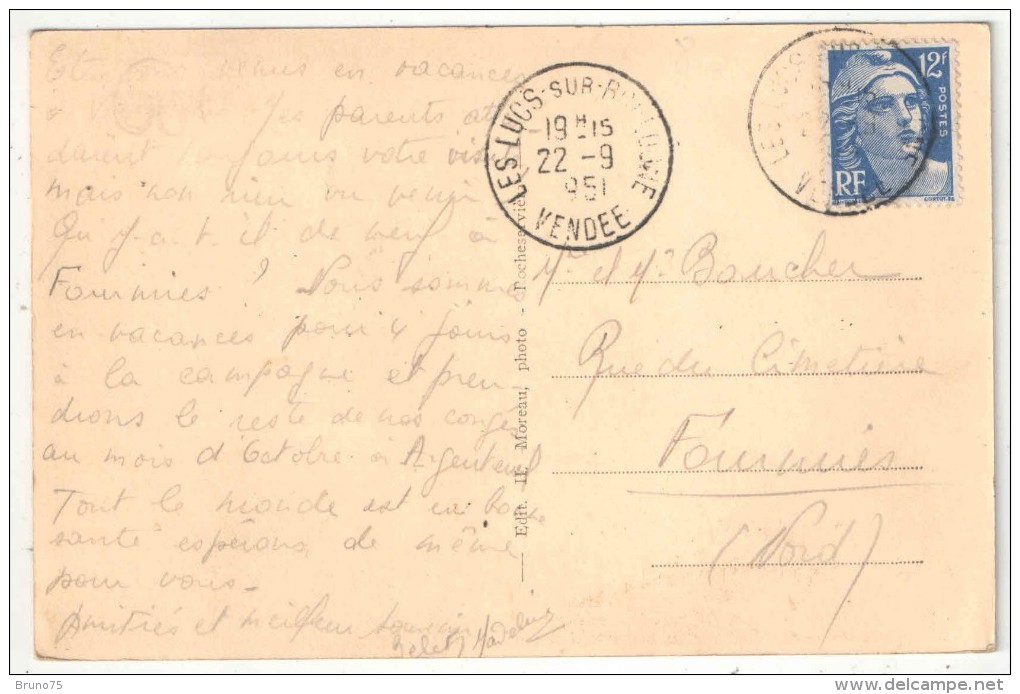 venus en vacances
à parents
daient toujours votre
mais non rien vu venir
Qu'y-a-t-il de neuf à
Fourmies? Nous sommes
en vacances pour 4 jours
à la campagne et pren
drons le reste de nos congés
au mois d'Octobre à Argenteuil
Tout le monde est en bonne
santé espérons de même
pour vous-
Amitiés et meilleur souvenir
Edit. H. Moreau, photo - Rocheservière
LES LUCS-SUR-BOULOGNE
19H15
22 -9
951
VENDEE
LES LUCS
VENDEE
12F
POSTES
RF
Mme et Mr Boucher
Rue du Cimetière
Fourmies
(Nord)
Bruno75